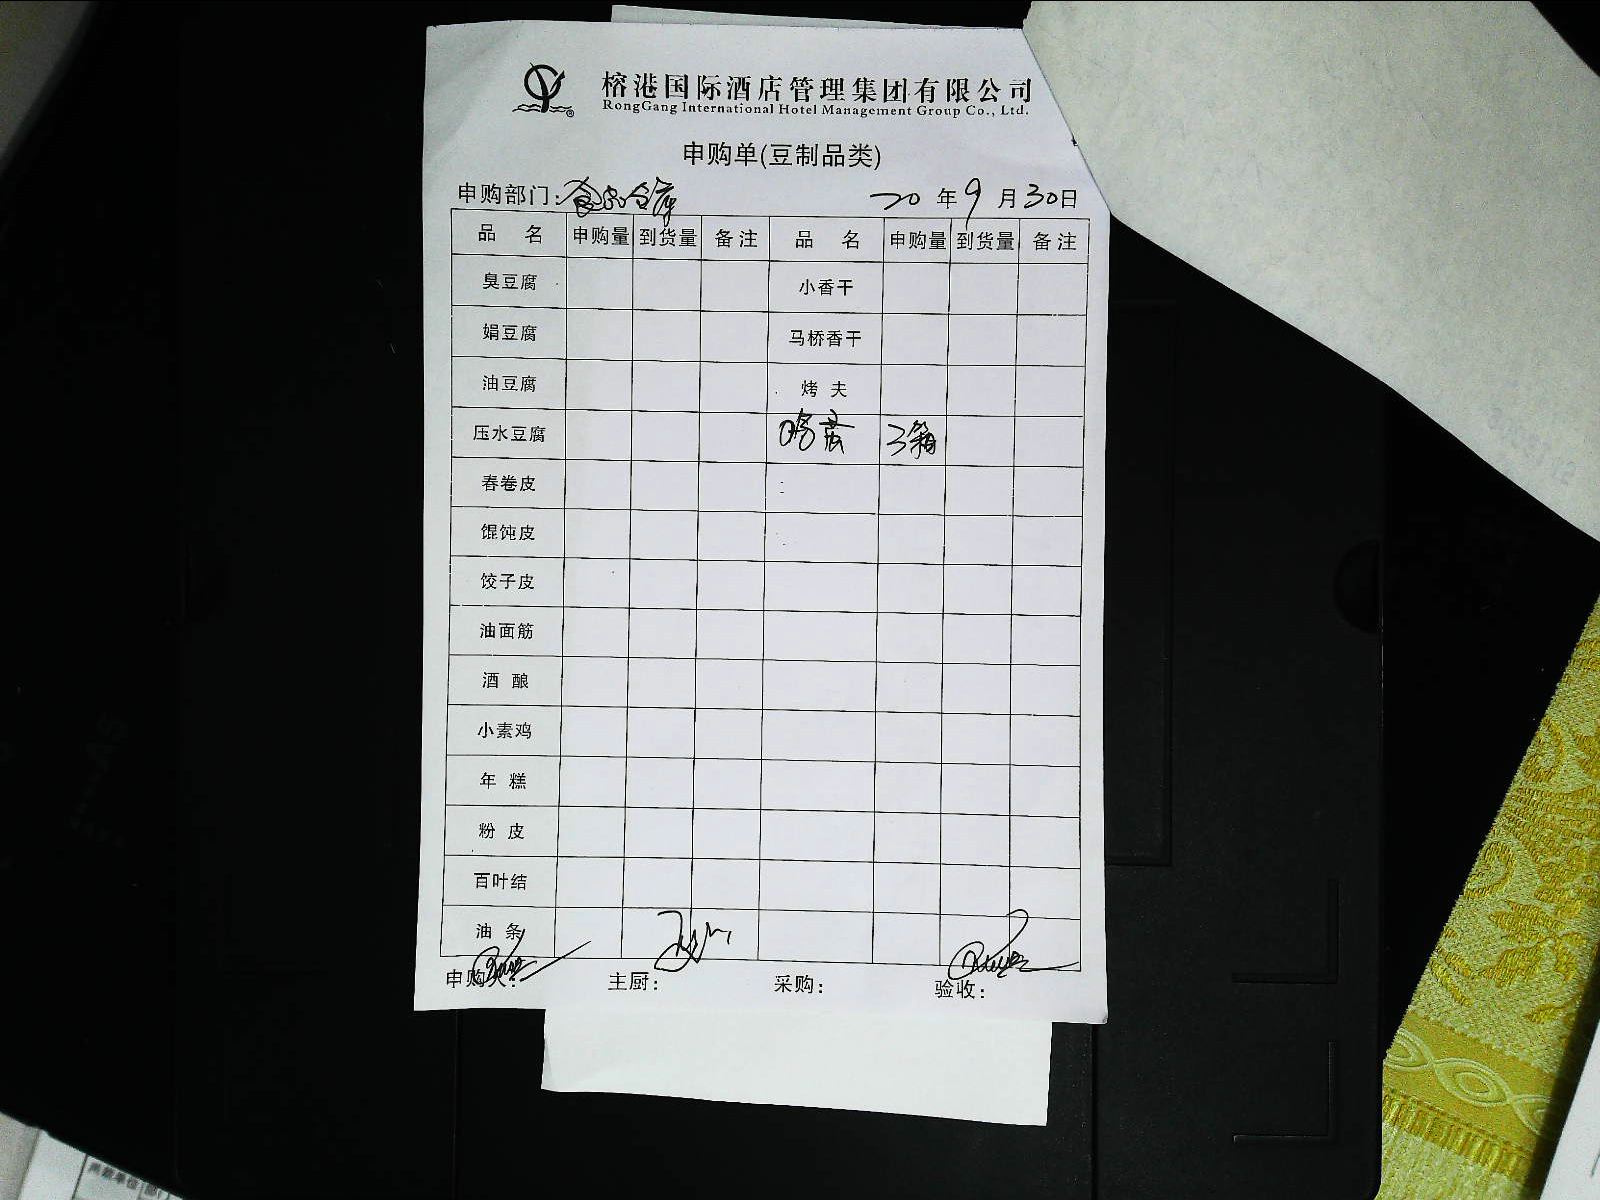 榕港国际酒店管理集团有限公司
RongGang International Hotel Management Group Co., Ltd.
申购单(豆制品类)
申购部门:食品仓库 20 年 9 月 30 日
品 名 申购量 到货量 备注 品 名 申购量 到货量 备注
臭豆腐 小香干
娟豆腐 马桥香干
油豆腐 烤 夫
压水豆腐 3箱
春卷皮
馄饨皮
饺子皮
油面筋
酒 酿
小素鸡
年 糕
粉 皮
百叶结
油 条
申购人: 主厨: 采购: 验收: